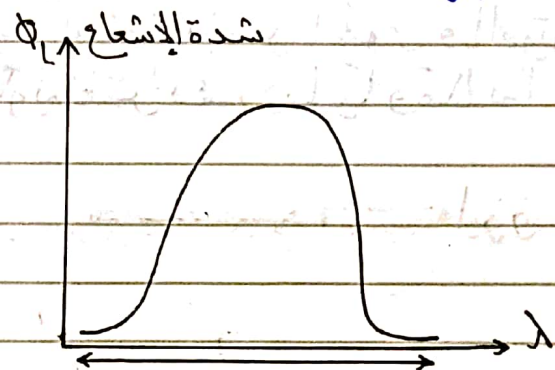 Φ_L شدة الإشعاع
λ